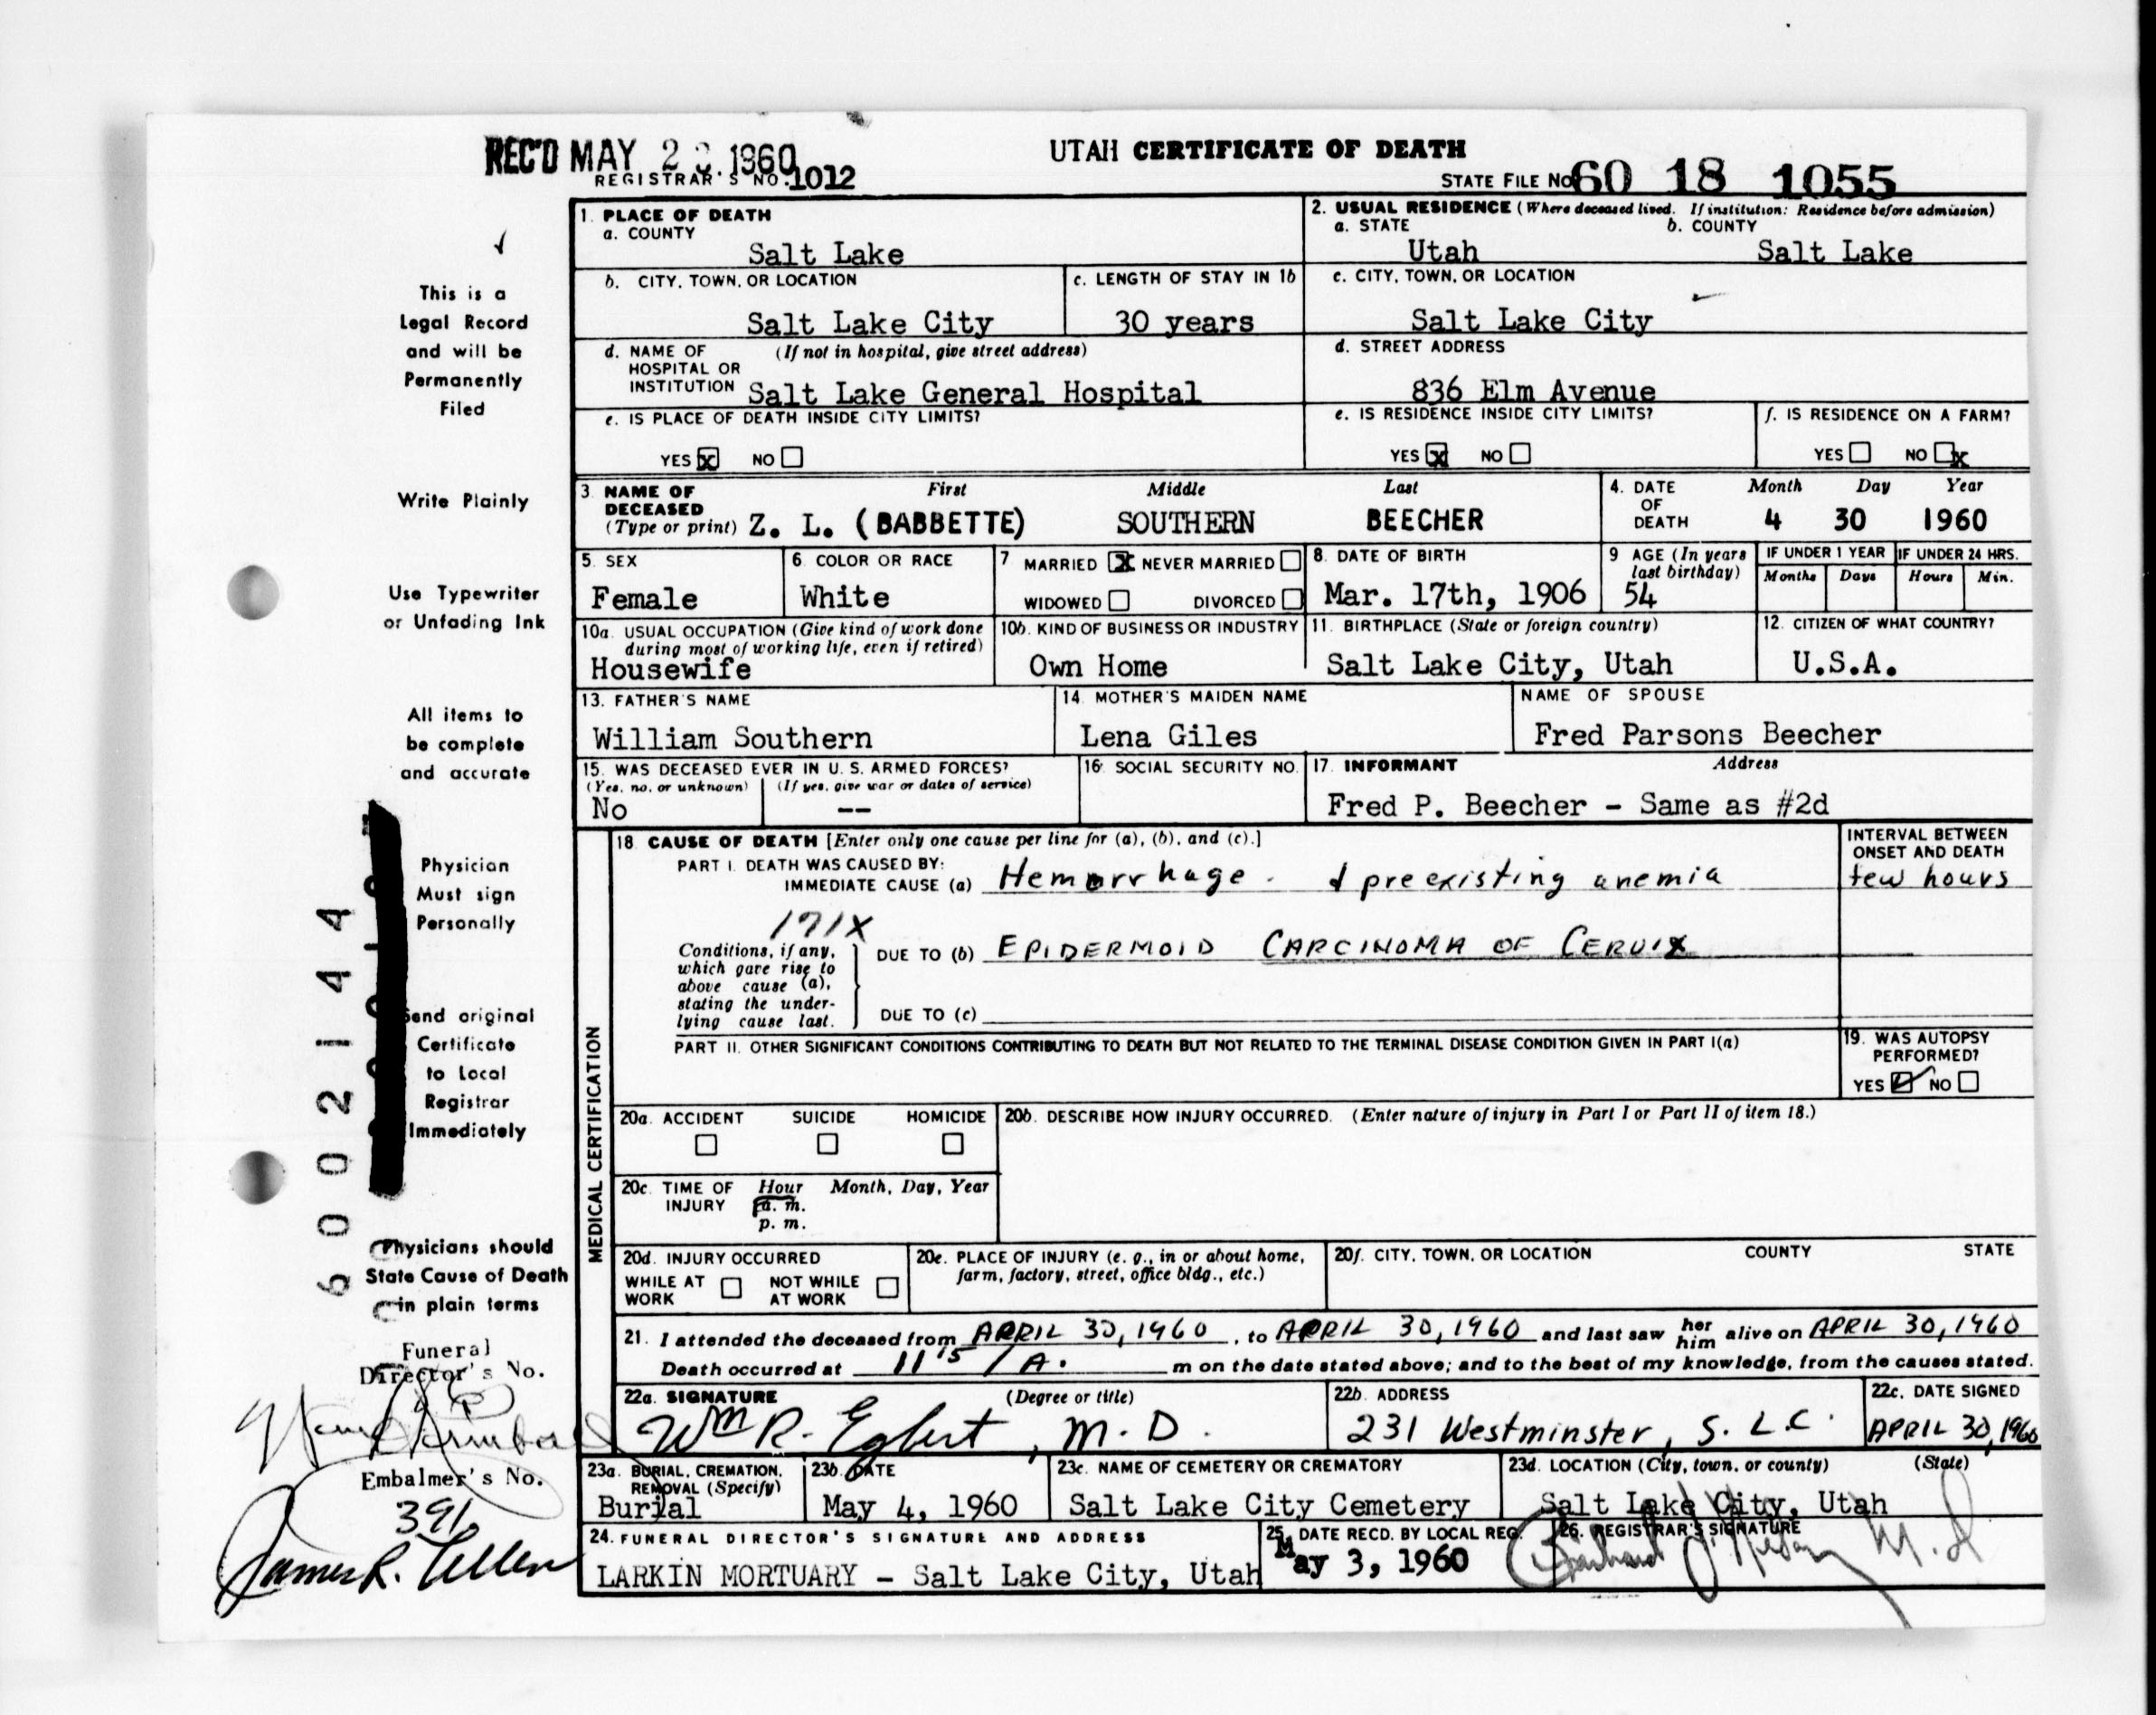 REC'D MAY 2 1960
REGISTRAR'S NO. 1012
UTAH CERTIFICATE OF DEATH
STATE FILE NO. 60 18 1055
This is a
Legal Record
and will be
Permanently
Filed
Write Plainly
Use Typewriter
or Unfading Ink
All items to
be complete
and accurate
Physician
Must sign
Personally
Send original
Certificate
to Local
Registrar
Immediately
Physicians should
State Cause of Death
in plain terms
6002144
Funeral
Director's No.
Embalmer's No.
391
James R.
1. PLACE OF DEATH
a. COUNTY
Salt Lake
b. CITY, TOWN, OR LOCATION
Salt Lake City
c. LENGTH OF STAY IN 1b
30 years
d. NAME OF HOSPITAL OR INSTITUTION (If not in hospital, give street address)
Salt Lake General Hospital
e. IS PLACE OF DEATH INSIDE CITY LIMITS?
YES X NO
2. USUAL RESIDENCE (Where deceased lived. If institution: Residence before admission)
a. STATE
Utah
b. COUNTY
Salt Lake
c. CITY, TOWN, OR LOCATION
Salt Lake City
d. STREET ADDRESS
836 Elm Avenue
e. IS RESIDENCE INSIDE CITY LIMITS?
YES X NO
f. IS RESIDENCE ON A FARM?
YES NO X
3. NAME OF DECEASED (Type or print)
First Middle Last
Z. L. (BABBETTE) SOUTHERN BEECHER
4. DATE OF DEATH
Month Day Year
4 30 1960
5. SEX
Female
6. COLOR OR RACE
White
7 MARRIED X NEVER MARRIED
WIDOWED DIVORCED
8. DATE OF BIRTH
Mar. 17th, 1906
9 AGE (In years last birthday)
54
IF UNDER 1 YEAR
Months Days
IF UNDER 24 HRS.
Hours Min.
10a. USUAL OCCUPATION (Give kind of work done
during most of working life, even if retired)
Housewife
10b. KIND OF BUSINESS OR INDUSTRY
Own Home
11. BIRTHPLACE (State or foreign country)
Salt Lake City, Utah
12. CITIZEN OF WHAT COUNTRY?
U.S.A.
13. FATHER'S NAME
William Southern
14. MOTHER'S MAIDEN NAME
Lena Giles
NAME OF SPOUSE
Fred Parsons Beecher
15. WAS DECEASED EVER IN U. S. ARMED FORCES?
(Yes, no, or unknown) (If yes, give war or dates of service)
No --
16. SOCIAL SECURITY NO.
17. INFORMANT Address
Fred P. Beecher - Same as #2d
MEDICAL CERTIFICATION
18. CAUSE OF DEATH [Enter only one cause per line for (a), (b), and (c).]
PART I. DEATH WAS CAUSED BY:
IMMEDIATE CAUSE (a) Hemorrhage. & preexisting anemia
INTERVAL BETWEEN
ONSET AND DEATH
few hours
171X
Conditions, if any,
which gave rise to
above cause (a),
stating the under-
lying cause last.
DUE TO (b) EPIDERMOID CARCINOMA OF CERVIX
DUE TO (c)
PART II. OTHER SIGNIFICANT CONDITIONS CONTRIBUTING TO DEATH BUT NOT RELATED TO THE TERMINAL DISEASE CONDITION GIVEN IN PART I(a)
19. WAS AUTOPSY
PERFORMED?
YES ✓ NO
20a. ACCIDENT SUICIDE HOMICIDE
20b. DESCRIBE HOW INJURY OCCURRED. (Enter nature of injury in Part I or Part II of item 18.)
20c. TIME OF INJURY
Hour Month, Day, Year
a. m.
p. m.
20d. INJURY OCCURRED
WHILE AT WORK NOT WHILE AT WORK
20e. PLACE OF INJURY (e. g., in or about home,
farm, factory, street, office bldg., etc.)
20f. CITY, TOWN, OR LOCATION COUNTY STATE
21. I attended the deceased from APRIL 30, 1960, to APRIL 30, 1960 and last saw her him alive on APRIL 30, 1960
Death occurred at 11 15 / A. m on the date stated above; and to the best of my knowledge, from the causes stated.
22a. SIGNATURE (Degree or title)
Wm R. Egbert, M. D.
22b. ADDRESS
231 Westminster, S. L. C.
22c. DATE SIGNED
APRIL 30, 1960
23a. BURIAL, CREMATION,
REMOVAL (Specify)
Burial
23b. DATE
May 4, 1960
23c. NAME OF CEMETERY OR CREMATORY
Salt Lake City Cemetery
23d. LOCATION (City, town, or county) (State)
Salt Lake City, Utah
24. FUNERAL DIRECTOR'S SIGNATURE AND ADDRESS
LARKIN MORTUARY - Salt Lake City, Utah
25. DATE RECD. BY LOCAL REG.
May 3, 1960
26. REGISTRAR'S SIGNATURE
M.D